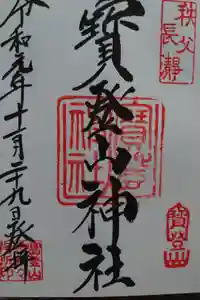 秩父
長瀞
寳登山神社
寳登山神社
寶登山
令和元年十二月二十九日敬拝